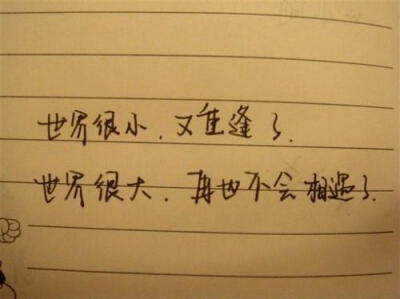 世界很小．又重逢了．
世界很大．再也不会相遇了．